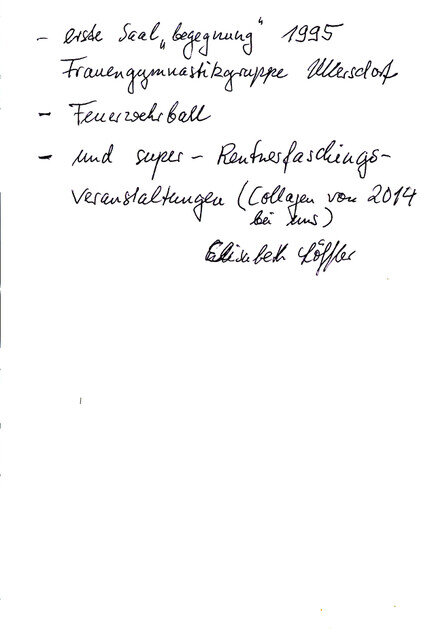 - erste Saal „begegnung“ 1995
Frauengymnastikgruppe Ullersdorf
- Feuerwehrball
- und super - Rentnerfaschings-
veranstaltungen (Collagen von 2014
bei uns)
Elisabeth Löffler